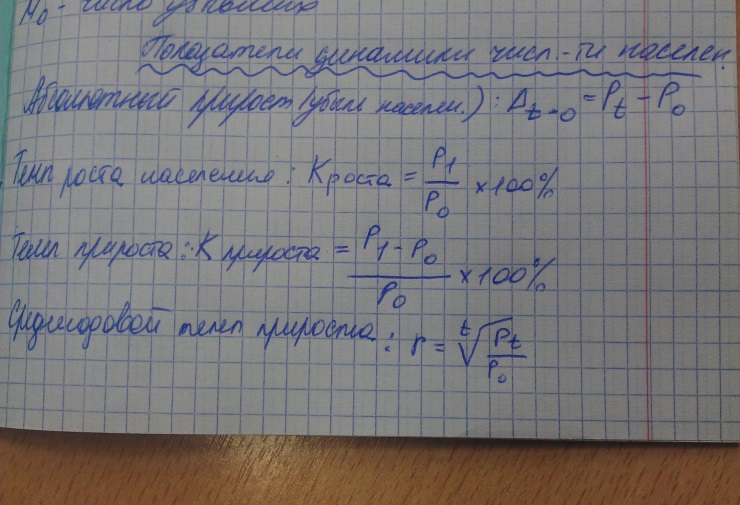 М₀ - число убывших
Показатели динамики числ.-ти населен.
Абсолютный прирост (убыль населен.): Δt-0 = Pt - P0
Темп роста населения: К роста = P1/P0 × 100%
Темп прироста: К прироста = (P1 - P0)/P0 × 100%
Среднегодовой темп прироста: r = ᵗ√(Pt/P0)